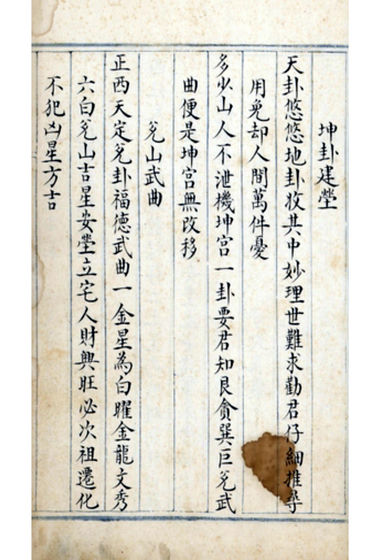 坤卦建塋
天卦悠悠地卦收其中妙理世難求勸君仔細推尋
用免却人間萬件憂
多少山人不泄機坤宫一卦要君知艮貪巽巨兌武
曲便是坤宫無改移
兌山武曲
正西天定兌卦福德武曲一金星為白曜金龍文秀
六白兌山吉星安塋立宅人財興旺必次祖遷化
不犯凶星方吉